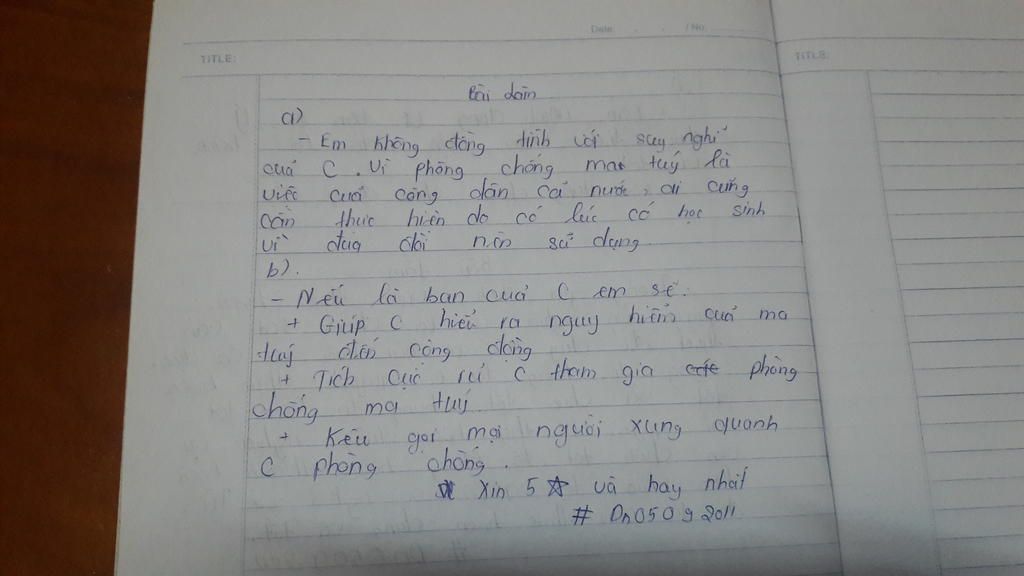 Date: . . / No:
TITLE:
TITLE:
Bài dàm
a)
- Em không đồng tình với suy nghĩ
của C. Vì phòng chống ma tuý là
việc cuả công dân cả nước, ai cũng
cần thực hiện do có lúc có học sinh
vì đua đòi nên sử dụng
b).
- Nếu là bạn cuả C em sẽ:
+ Giúp C hiểu ra nguy hiểm cuả ma
tuý đến cộng đồng
+ Tích cực rủ C tham gia phòng
chống ma tuý
+ Kêu gọi mọi người xung quanh
C phòng chống.
Xin 5 ☆ và hay nhất
# Dn05092011